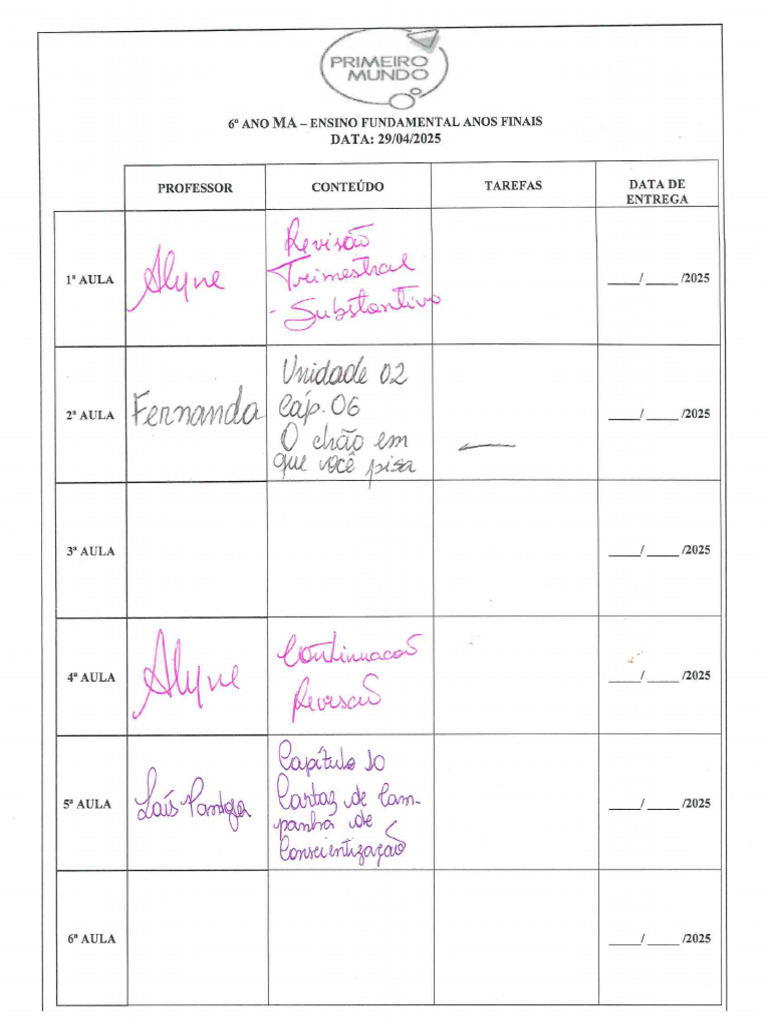 PRIMEIRO
MUNDO
6º ANO MA – ENSINO FUNDAMENTAL ANOS FINAIS
DATA: 29/04/2025
PROFESSOR CONTEÚDO TAREFAS DATA DE
ENTREGA
1ª AULA Alyne Revisão
Trimestral
- Substantivo
____/ ____ /2025
2ª AULA Fernanda Unidade 02
Cáp. 06
O chão em
que você pisa
____/ ____ /2025
3ª AULA ____/ ____ /2025
4ª AULA Alyne Continuacão
Revisão
____/ ____ /2025
5ª AULA Laís Pantoja Capítulo 10
Cartaz de Cam-
panha de
Conscientização
____/ ____ /2025
6ª AULA ____/ ____ /2025